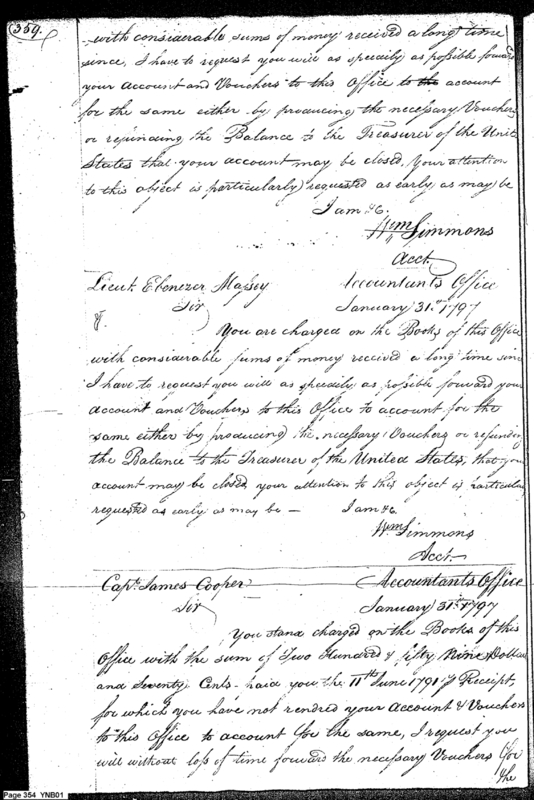 359.
with considerable sums of money received a long time
since, I have to request you will as speedily as possible forward
your account and Vouchers to this Office to the account
for the same either by producing the necessary Vouchers
or refunding the Balance to the Treasurer of the Unit
States that your account may be closed, Your attention
to this object is particularly requested as early as may be
I am &c.
Wm Simmons
Acct.
Lieut. Ebenezer Massey
Accountants Office
Sir
January 31st 1797
You are charged on the Books of this Office
with considerable sums of money received a long time since
I have to request you will as speedily as possible forward your
account and Vouchers to this Office to account for the
same either by producing the necessary Vouchers or refunding
the Balance to the Treasurer of the United States, that your
account may be closed your attention to this object is particular
requested as early as may be — I am &c
Wm Simmons
Acct.
Capt. James Cooper
Accountants Office
Sir
January 31st 1797
You stand charged on the Books of this
Office with the sum of Two Hundred & fifty Nine Dollars
and Seventy Cents paid you the 11th June 1791 Receipt
for which you have not rendred your account & Vouchers
to this Office to account for the same, I request you
will without loss of time forward the necessary Vouchers for
the
Page 354 YNB01